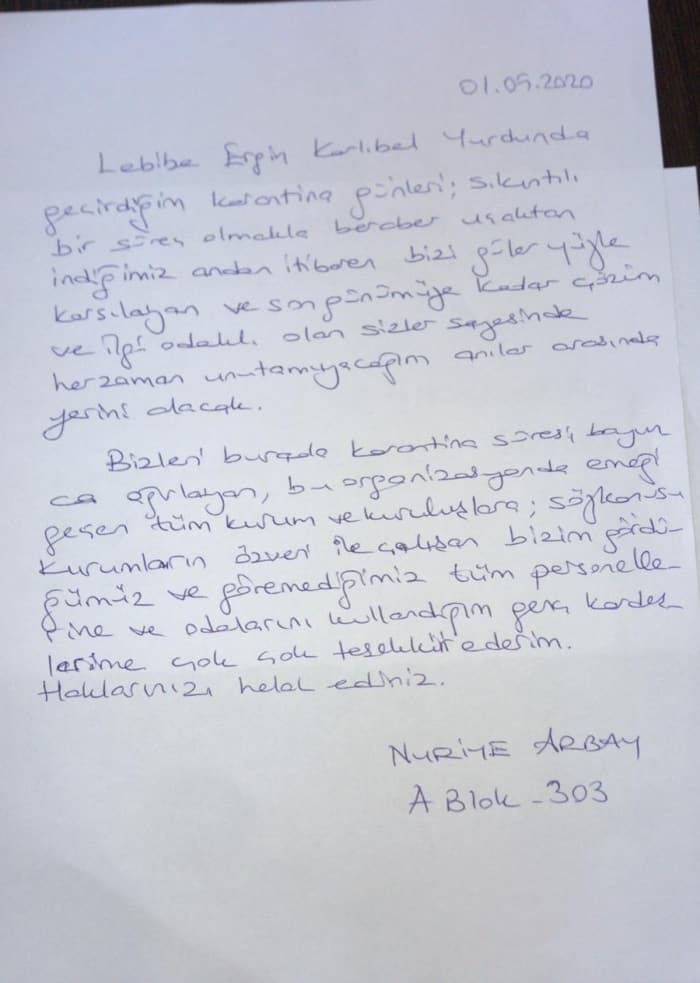 01.05.2020
Lebibe Ergin Karlıbel Yurdunda
geçirdiğim karantina günleri; sıkıntılı
bir süreç olmakla beraber uçaktan
indiğimiz andan itibaren bizi güler yüzle
karşılayan ve son günümüze kadar çözüm
ve ilgi odaklı olan sizler sayesinde
herzaman unutamıyacağım anılar arasında
yerini alacak.
Bizleri burada karantina süresi boyun
ca ağırlayan, bu organizasyonda emeği
geçen tüm kurum ve kuruluşlara; sözkonusu
kurumların özveri ile çalışan bizim gördü-
ğümüz ve göremediğimiz tüm personelle-
rine ve odalarını kullandığım genç kardeş
lerime çok çok teşekkür ederim.
Haklarınızı helal ediniz.
NURİYE ARBAY
A Blok - 303